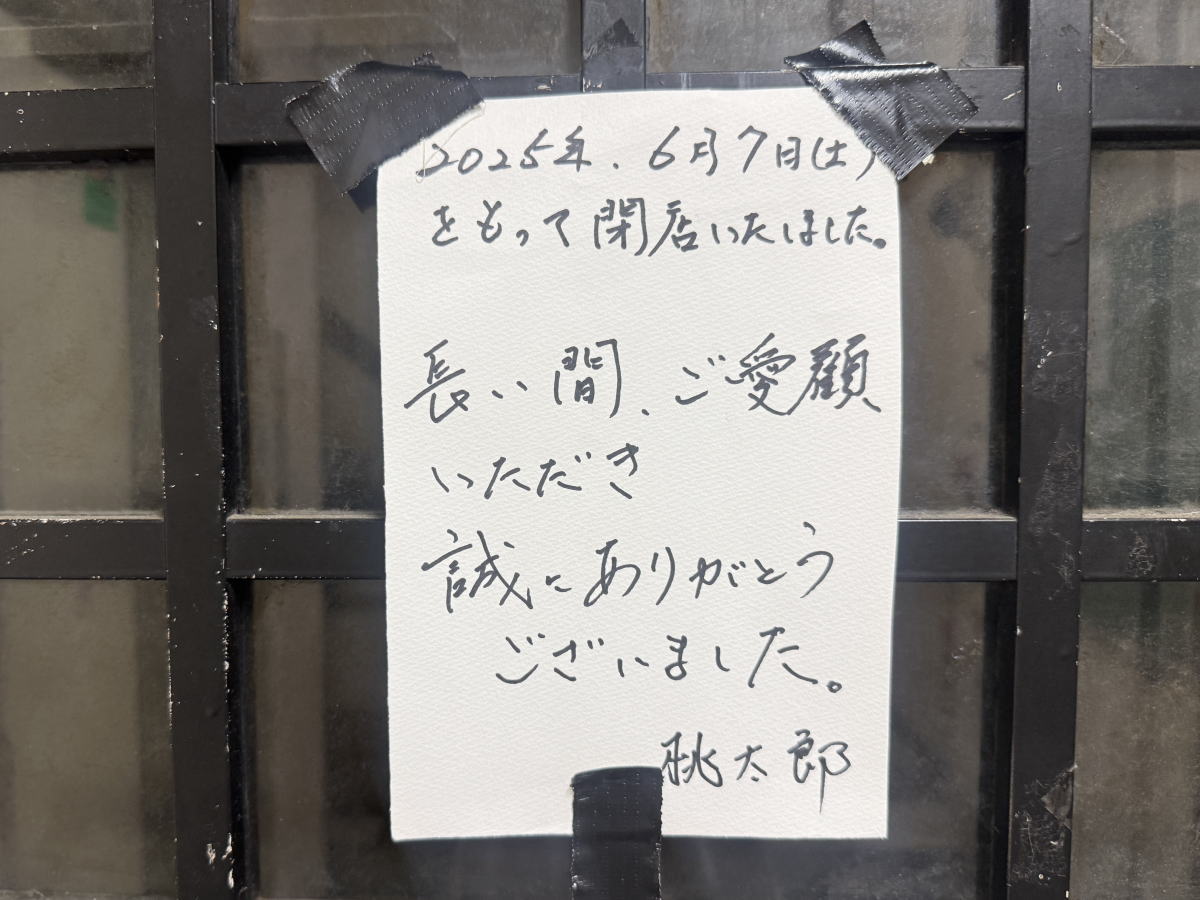 2025年.6月7日(土)
をもって閉店いたしました。
長い間、ご愛顧
いただき
誠にありがとう
ございました。
桃太郎